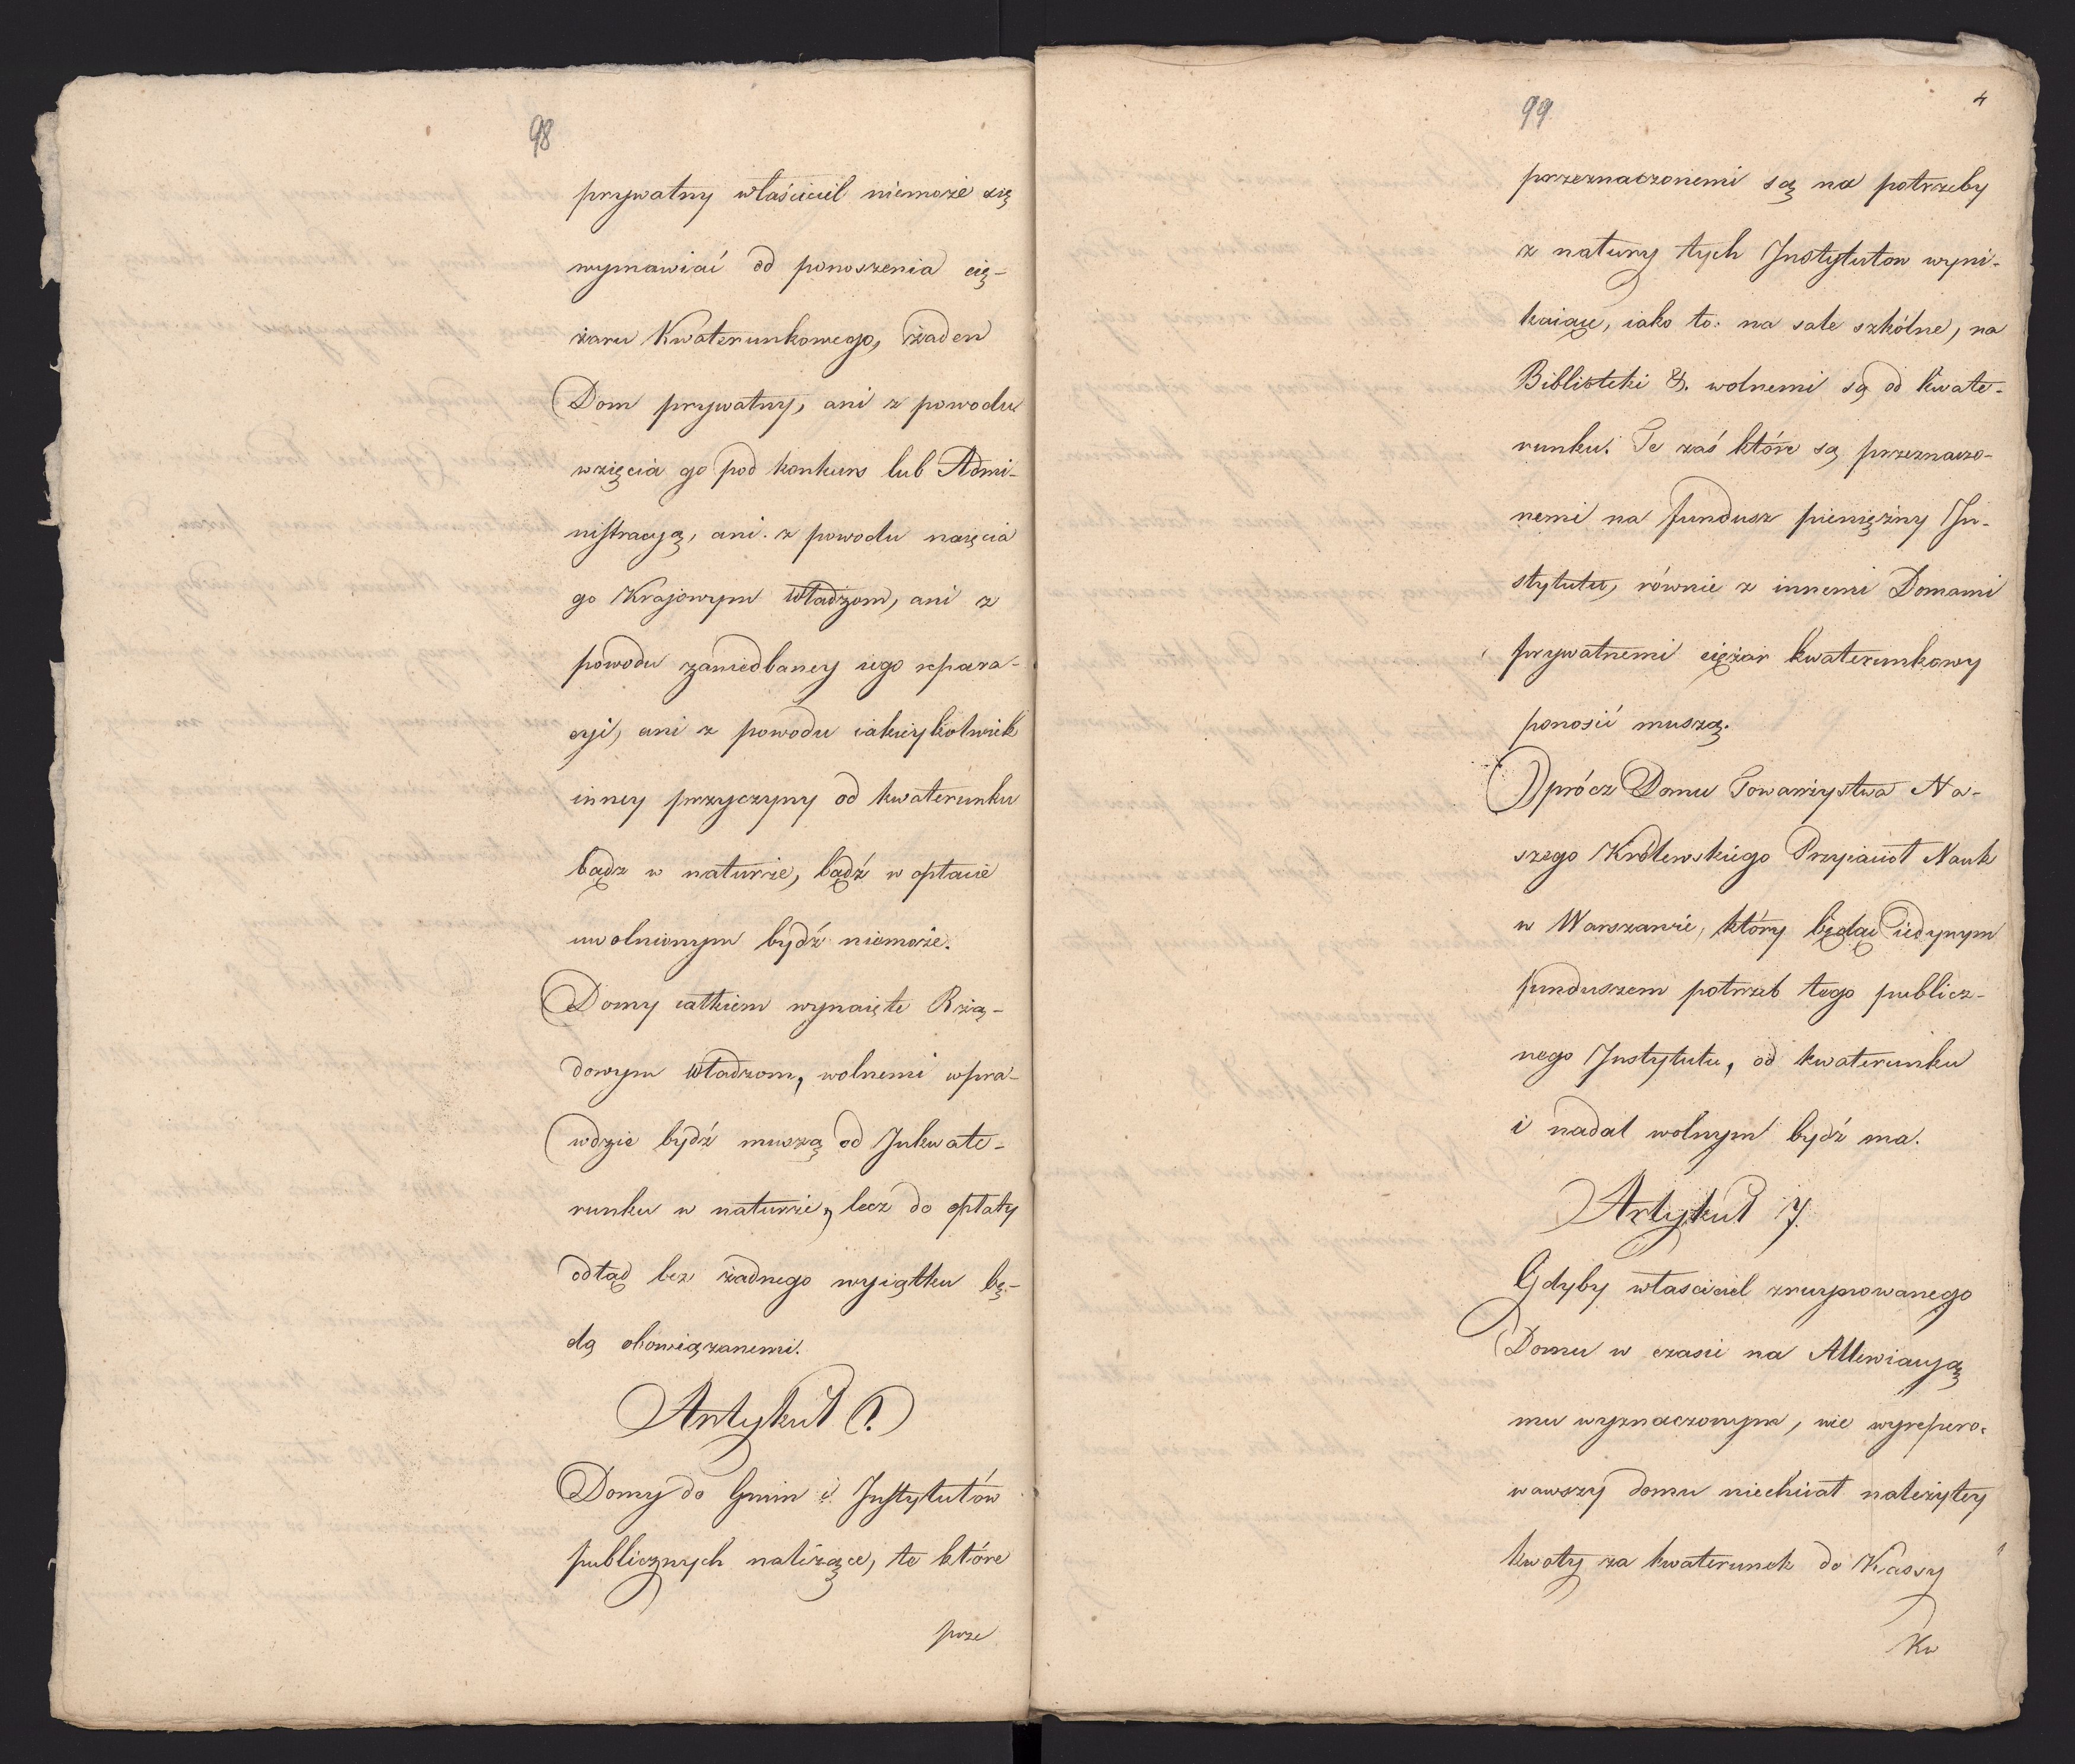 98
prywatny właściciel niemoże się
wymawiać od ponoszenia cię-
żaru Kwaterunkowego, żaden
Dom prywatny, ani z powodu
wzięcia go pod konkurs lub Admi-
nistracyą, ani z powodu naięcia
go Krajowym Władzom, ani z
powodu zaniedbaney iego repara-
cyi, ani z powodu iakieykolwiek
inney przyczyny od kwaterunku
bądz w naturze, bądź w opłacie
uwolnionym bydź niemoże.
Domy całkiem wynaięte Rzą-
dowym Władzom, wolnemi wpra-
wdzie bydź muszą od Inkwate-
runku w naturze, lecz do opłaty
odtąd bez żadnego wyiątku bę-
dą obowiązanemi.
Artykuł 6.
Domy do Gmin i Instytutów
publicznych należące, te które
prze
99
4
przeznaczonemi są na potrzeby
z natury tych Instytutow wyni-
kaiące, iako to: na sale szkólne, na
Biblioteki &. wolnemi są od kwate-
runku. Te zaś które są przeznaczo-
nemi na fundusz pieniężny In-
stytutu, równie z innemi Domami
prywatnemi ciężar kwaterunkowy
ponosić muszą.
Oprócz Domu Towarzystwa Na-
szego Królewskiego Przyiaciół Nauk
w Warszawie, który będąc iedynym
funduszem potrzeb tego publicz-
nego Instytutu, od kwaterunku
i nadal wolnym bydź ma.
Artykuł 7.
Gdyby własciciel zruynowanego
Domu w czasie na Allewiacyą
mu wyznaczonym, nie wyrepero-
wawszy domu niechciał należytey
kwoty za kwaterunek do Kassy
Kw